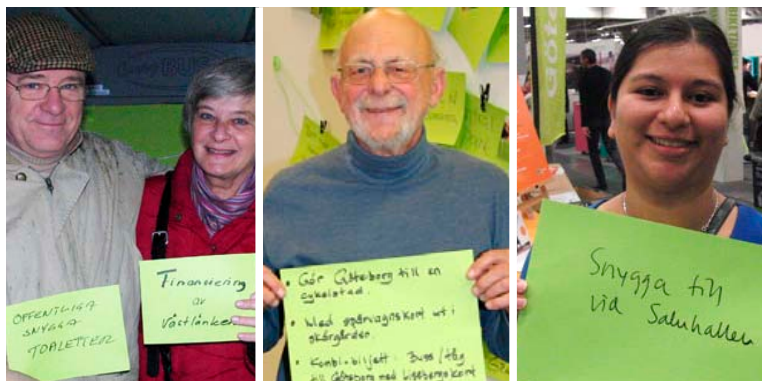 OFFENTLIGA
SNYGGA
TOALETTER
Finansiering
av
Västlänken
• Gör Göteborg till en
cykelstad.
• Med spårvagnskort ut i
skärgården.
• Kombi-biljett: Buss/tåg
till Göteborg med Lisebergskort
Göte
Snygga till
vid Saluhallen